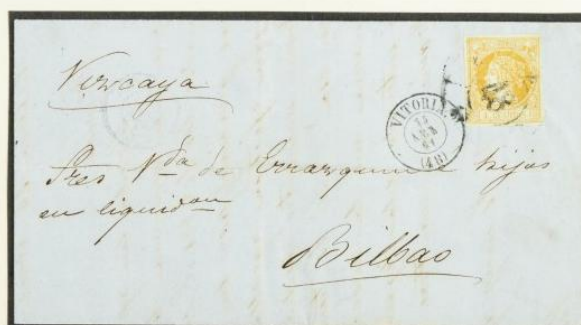 Vizcaya
VITORIA
ABR
(48)
48
Sres V.da de Errazquin e hijos
en liquid.on
Bilbao